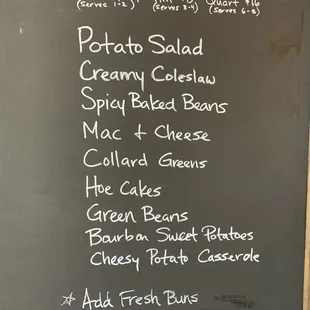 Quart $16
(serves 1-2) (serves 3-4) (serves 6-8)
Potato Salad
Creamy Coleslaw
Spicy Baked Beans
Mac + Cheese
Collard Greens
Hoe Cakes
Green Beans
Bourbon Sweet Potatoes
Cheesy Potato Casserole
☆ Add Fresh Buns